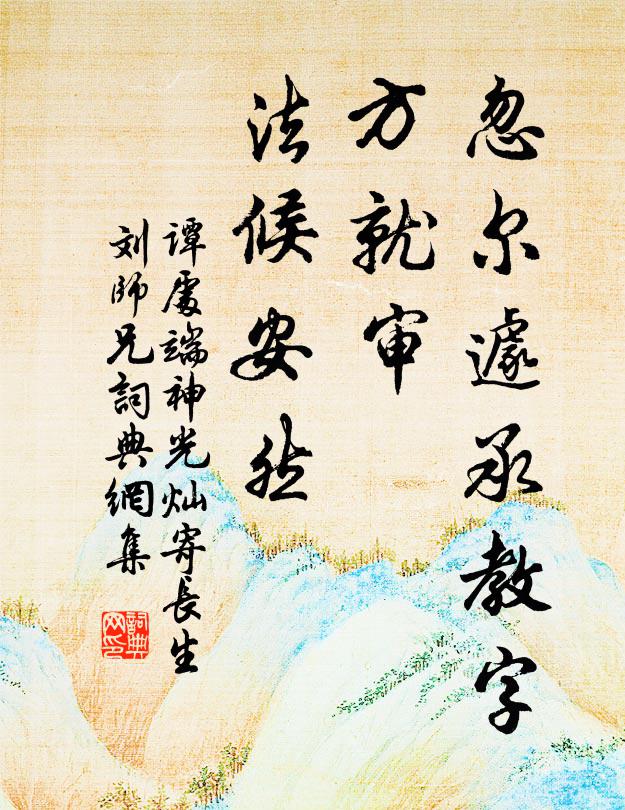 忽尔遽承教字
方就审
法候安然
谭处端神光灿寄长生
刘师兄詞典網集
詞典
网印